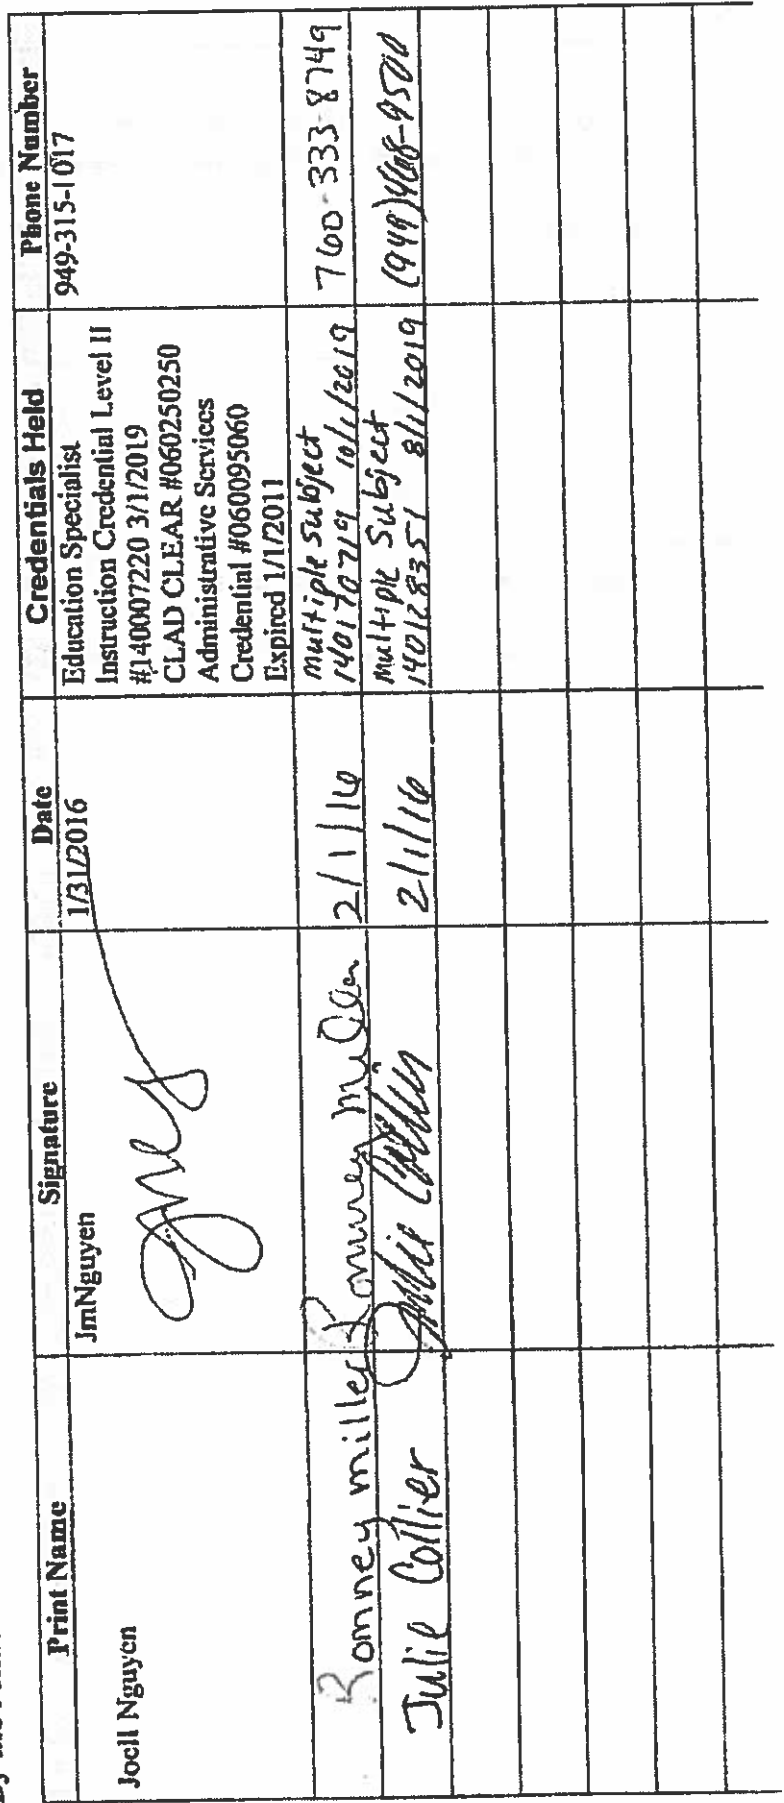 Print Name Signature Date Credentials Held Phone Number
Joell Nguyen JmNguyen 1/31/2016 Education Specialist 949-315-1017
Instruction Credential Level II
#140007220 3/1/2019
CLAD CLEAR #060250250
Administrative Services
Credential #060095060
Expired 1/1/2011
Romney miller Romney Miller 2/1/16 multiple subject 760-333-8749
140170719 10/1/2019
Julie Collier Julie Collier 2/1/16 Multiple Subject (949)468-9500
140128351 8/1/2019